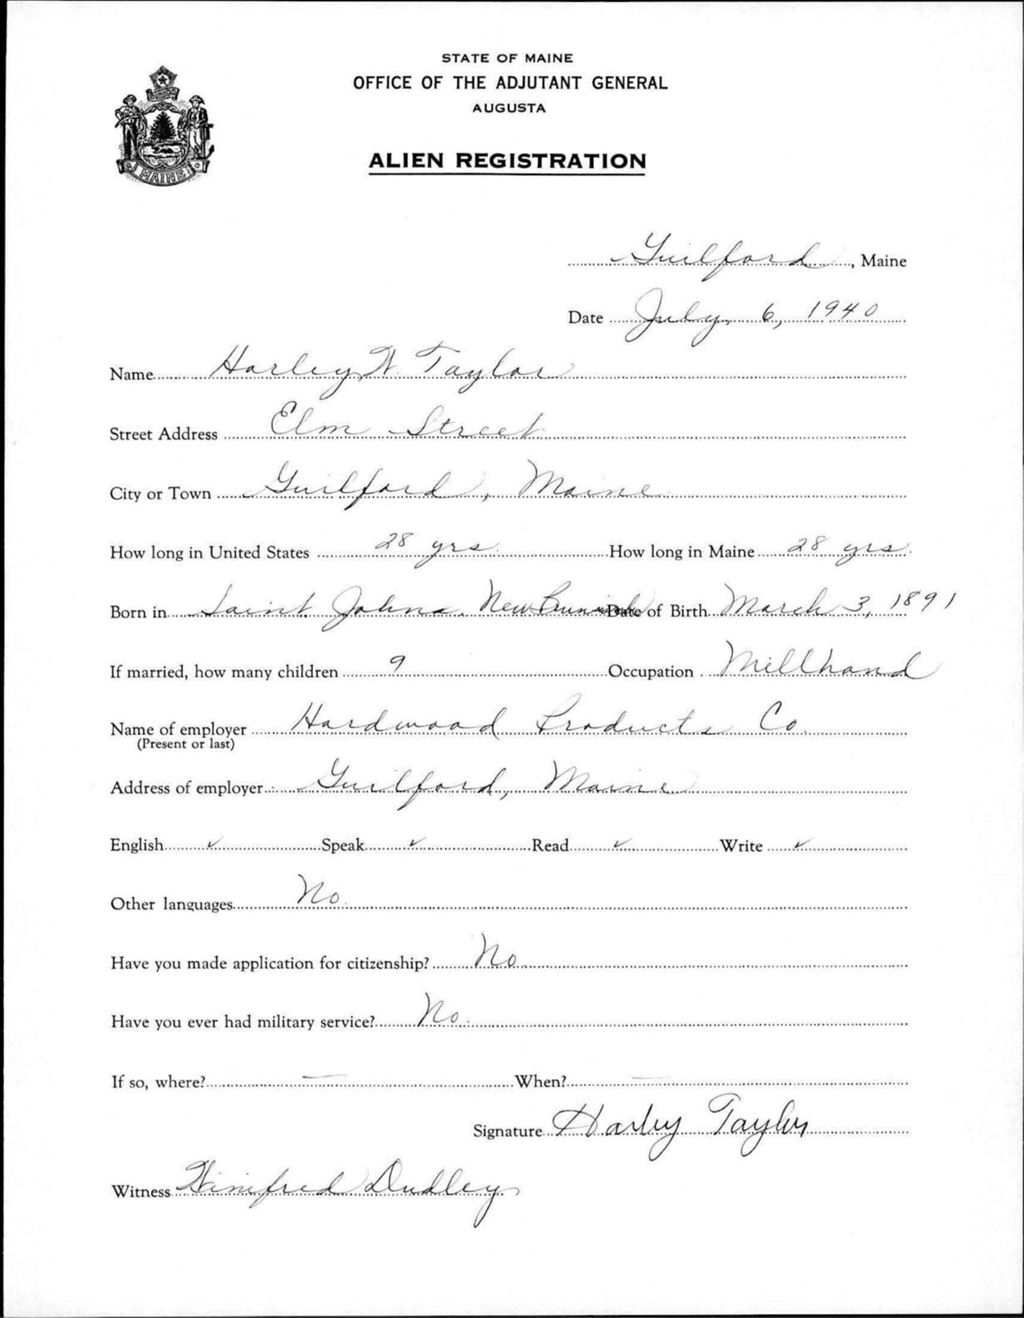 STATE OF MAINE
OFFICE OF THE ADJUTANT GENERAL
AUGUSTA
ALIEN REGISTRATION
MAINE
Guilford, Maine
Date July 6, 1940
Name Harley W. Taylor
Street Address Elm Street
City or Town Guilford, Maine
How long in United States 28 yrs How long in Maine 28 yrs.
Born in Saint Johns, New Brunswick Date of Birth March 3, 1891
If married, how many children 9 Occupation Millhand
Name of employer Hardwood Products Co.
(Present or last)
Address of employer Guilford, Maine
English ✓ Speak ✓ Read ✓ Write ✓
Other languages No
Have you made application for citizenship? No
Have you ever had military service? No
If so, where? — When? —
Signature Harley Taylor
Witness Winifred Dudley